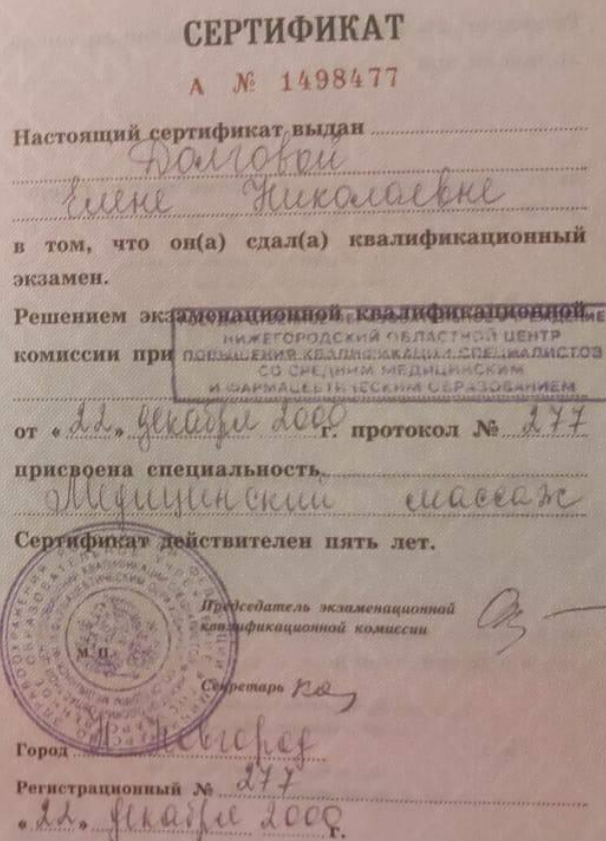 СЕРТИФИКАТ
А № 1498477
Настоящий сертификат выдан
Долговой
Елене Николаевне
в том, что он(а) сдал(а) квалификационный
экзамен.
Решением экзаменационной квалификационной
комиссии при
НИЖЕГОРОДСКИЙ ОБЛАСТНОЙ ЦЕНТР
ПОВЫШЕНИЯ КВАЛИФИКАЦИИ СПЕЦИАЛИСТОВ
СО СРЕДНИМ МЕДИЦИНСКИМ
И ФАРМАЦЕВТИЧЕСКИМ ОБРАЗОВАНИЕМ
от «22» декабря 2000 г. протокол № 277
присвоена специальность
Медицинский массаж
Сертификат действителен пять лет.
Председатель экзаменационной
квалификационной комиссии
М.П.
Секретарь
Город Н Новгород
Регистрационный № 277
«22» декабря 2000 г.